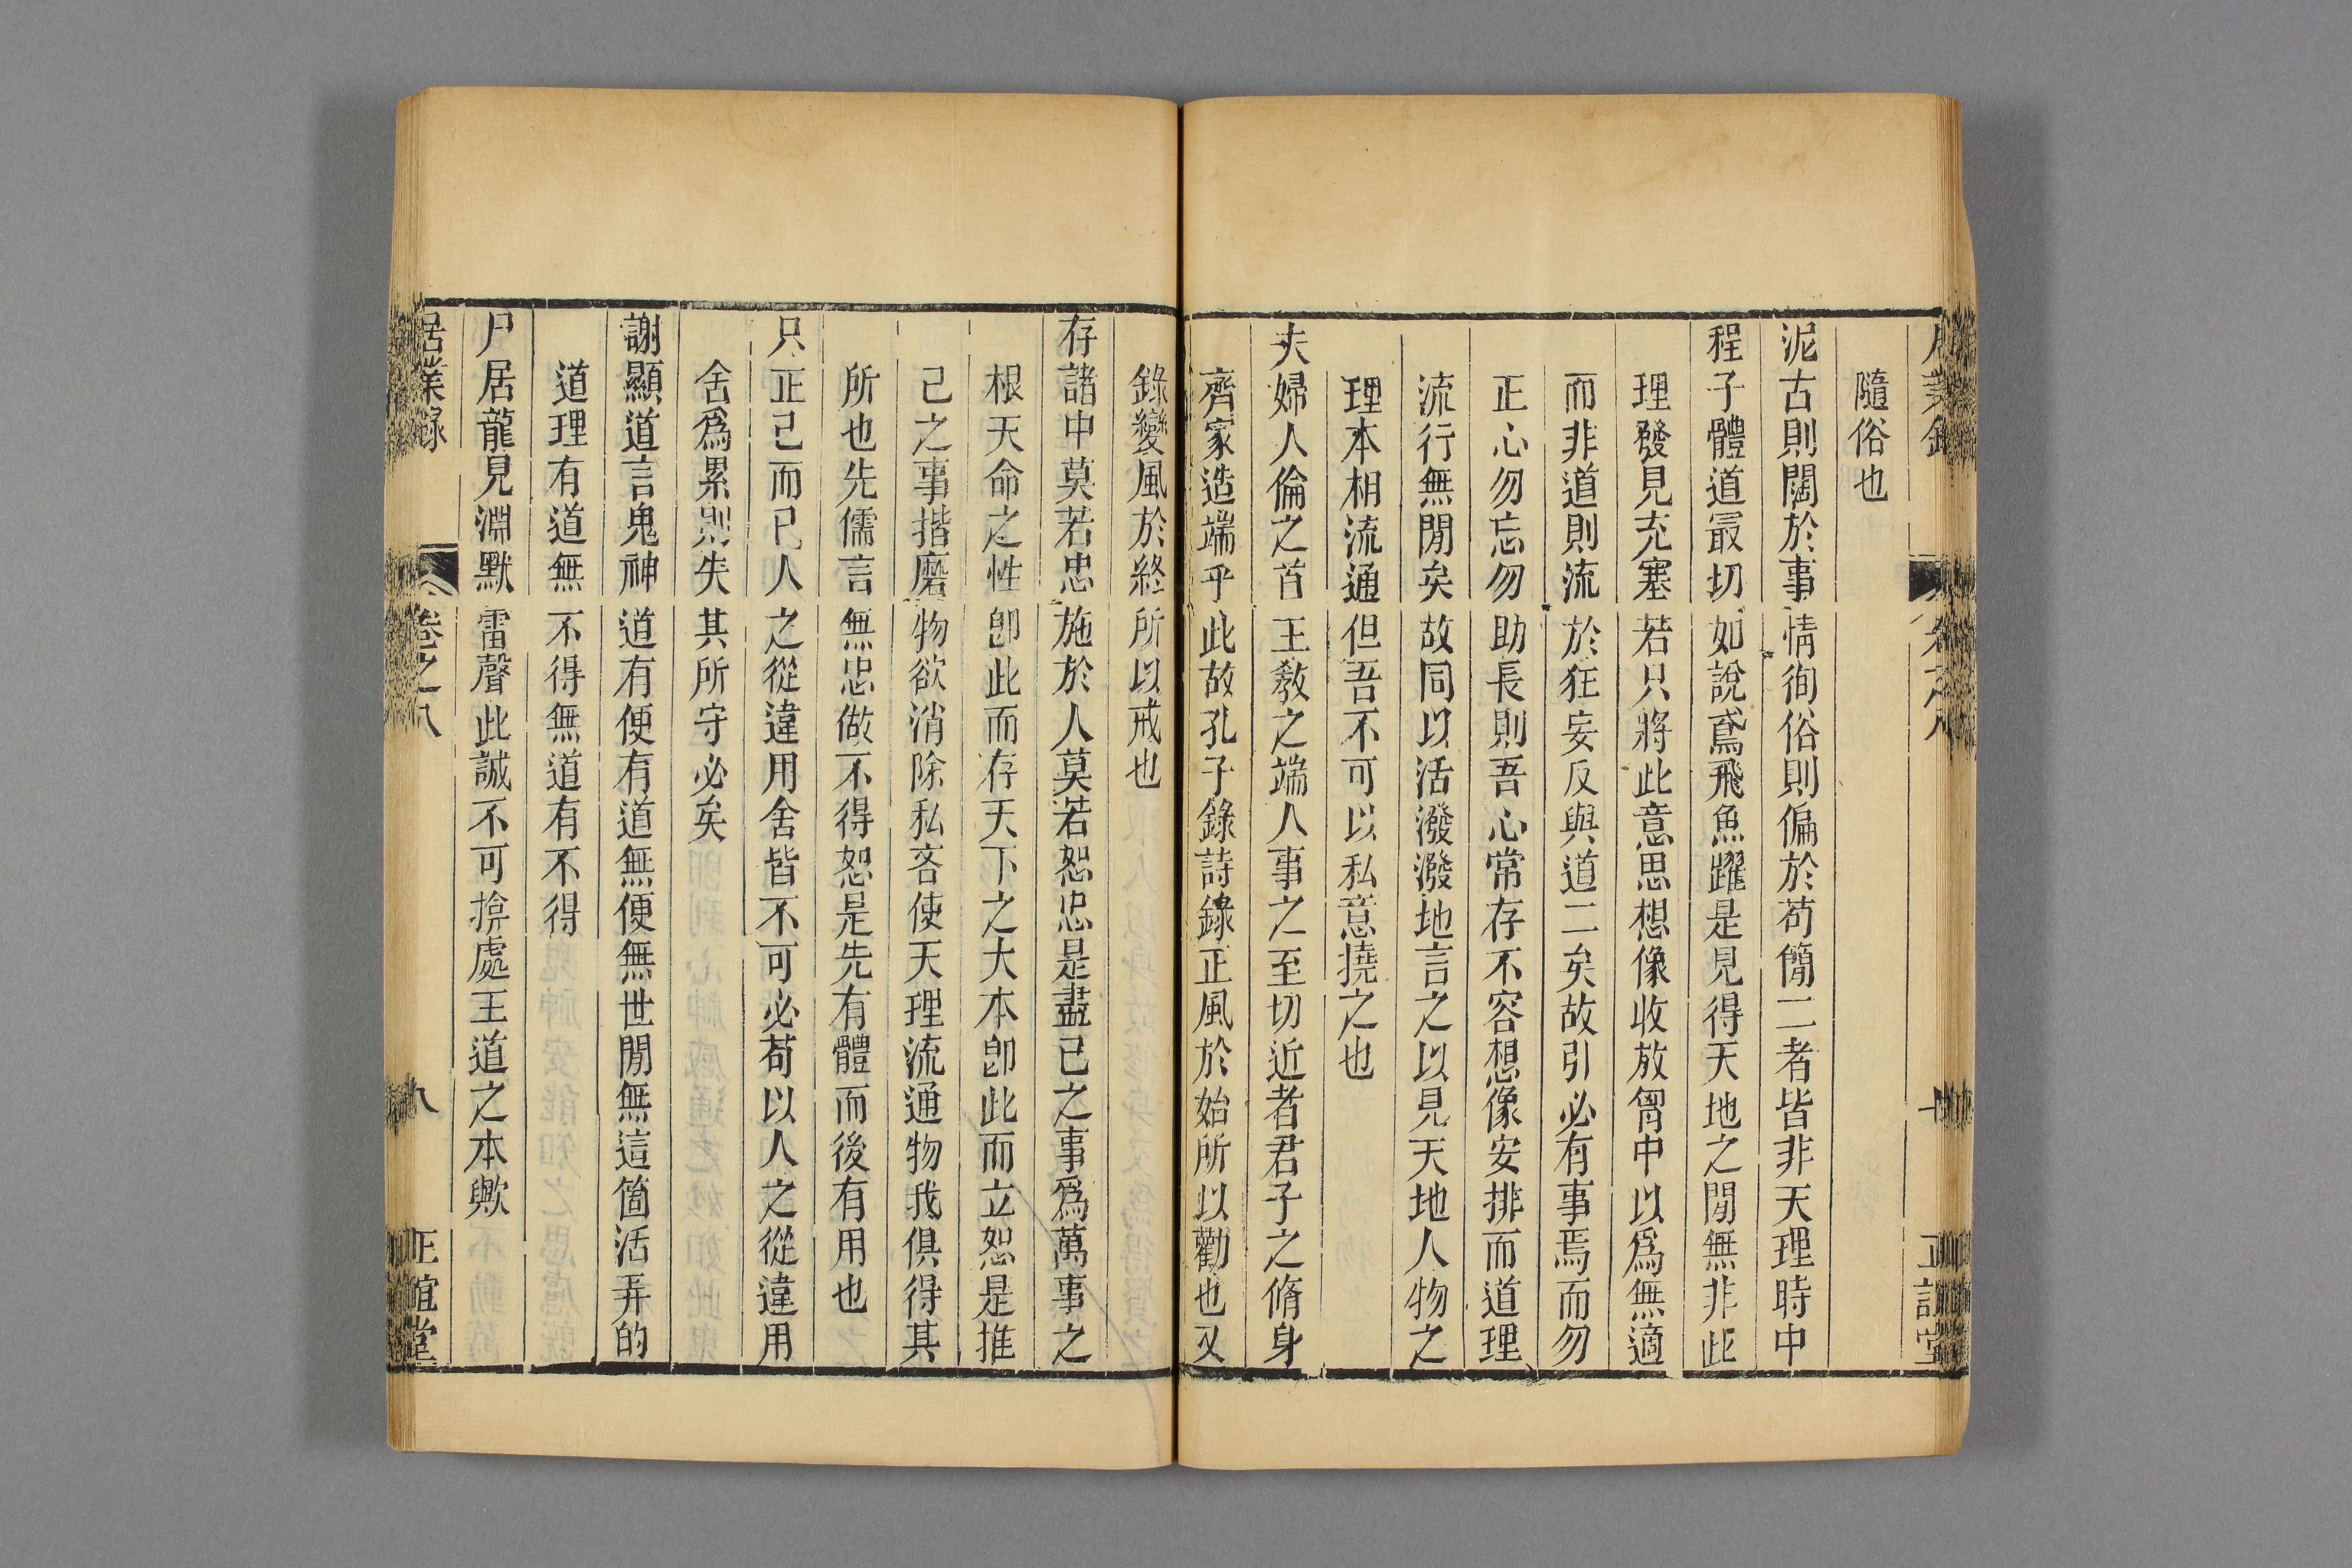 隨俗也
泥古則闊於事情徇俗則偏於苟簡二者皆非天理時中
程子體道最切如說鳶飛魚躍是見得天地之閒無非此
理發見充塞若只將此意思想像收放胷中以為無適
而非道則流於狂妄反與道二矣故引必有事焉而勿
正心勿忘勿助長則吾心常存不容想像安排而道理
流行無閒矣故同以活潑潑地言之以見天地人物之
理本相流通但吾不可以私意撓之也
夫婦人倫之首王敎之端人事之至切近者君子之脩身
齊家造端乎此故孔子錄詩錄正風於始所以勸也又
錄變風於終所以戒也
存諸中莫若忠施於人莫若恕忠是盡己之事為萬事之
根天命之性卽此而存天下之大本卽此而立恕是推
己之事揩磨物欲消除私吝使天理流通物我俱得其
所也先儒言無忠做不得恕是先有體而後有用也
只正己而已人之從違用舍皆不可必苟以人之從違用
舍為累則失其所守必矣
謝顯道言鬼神道有便有道無便無世閒無這箇活弄的
道理有道無不得無道有不得
尸居龍見淵默雷聲此誠不可揜處王道之本歟
居業錄 卷之八 九 正誼堂